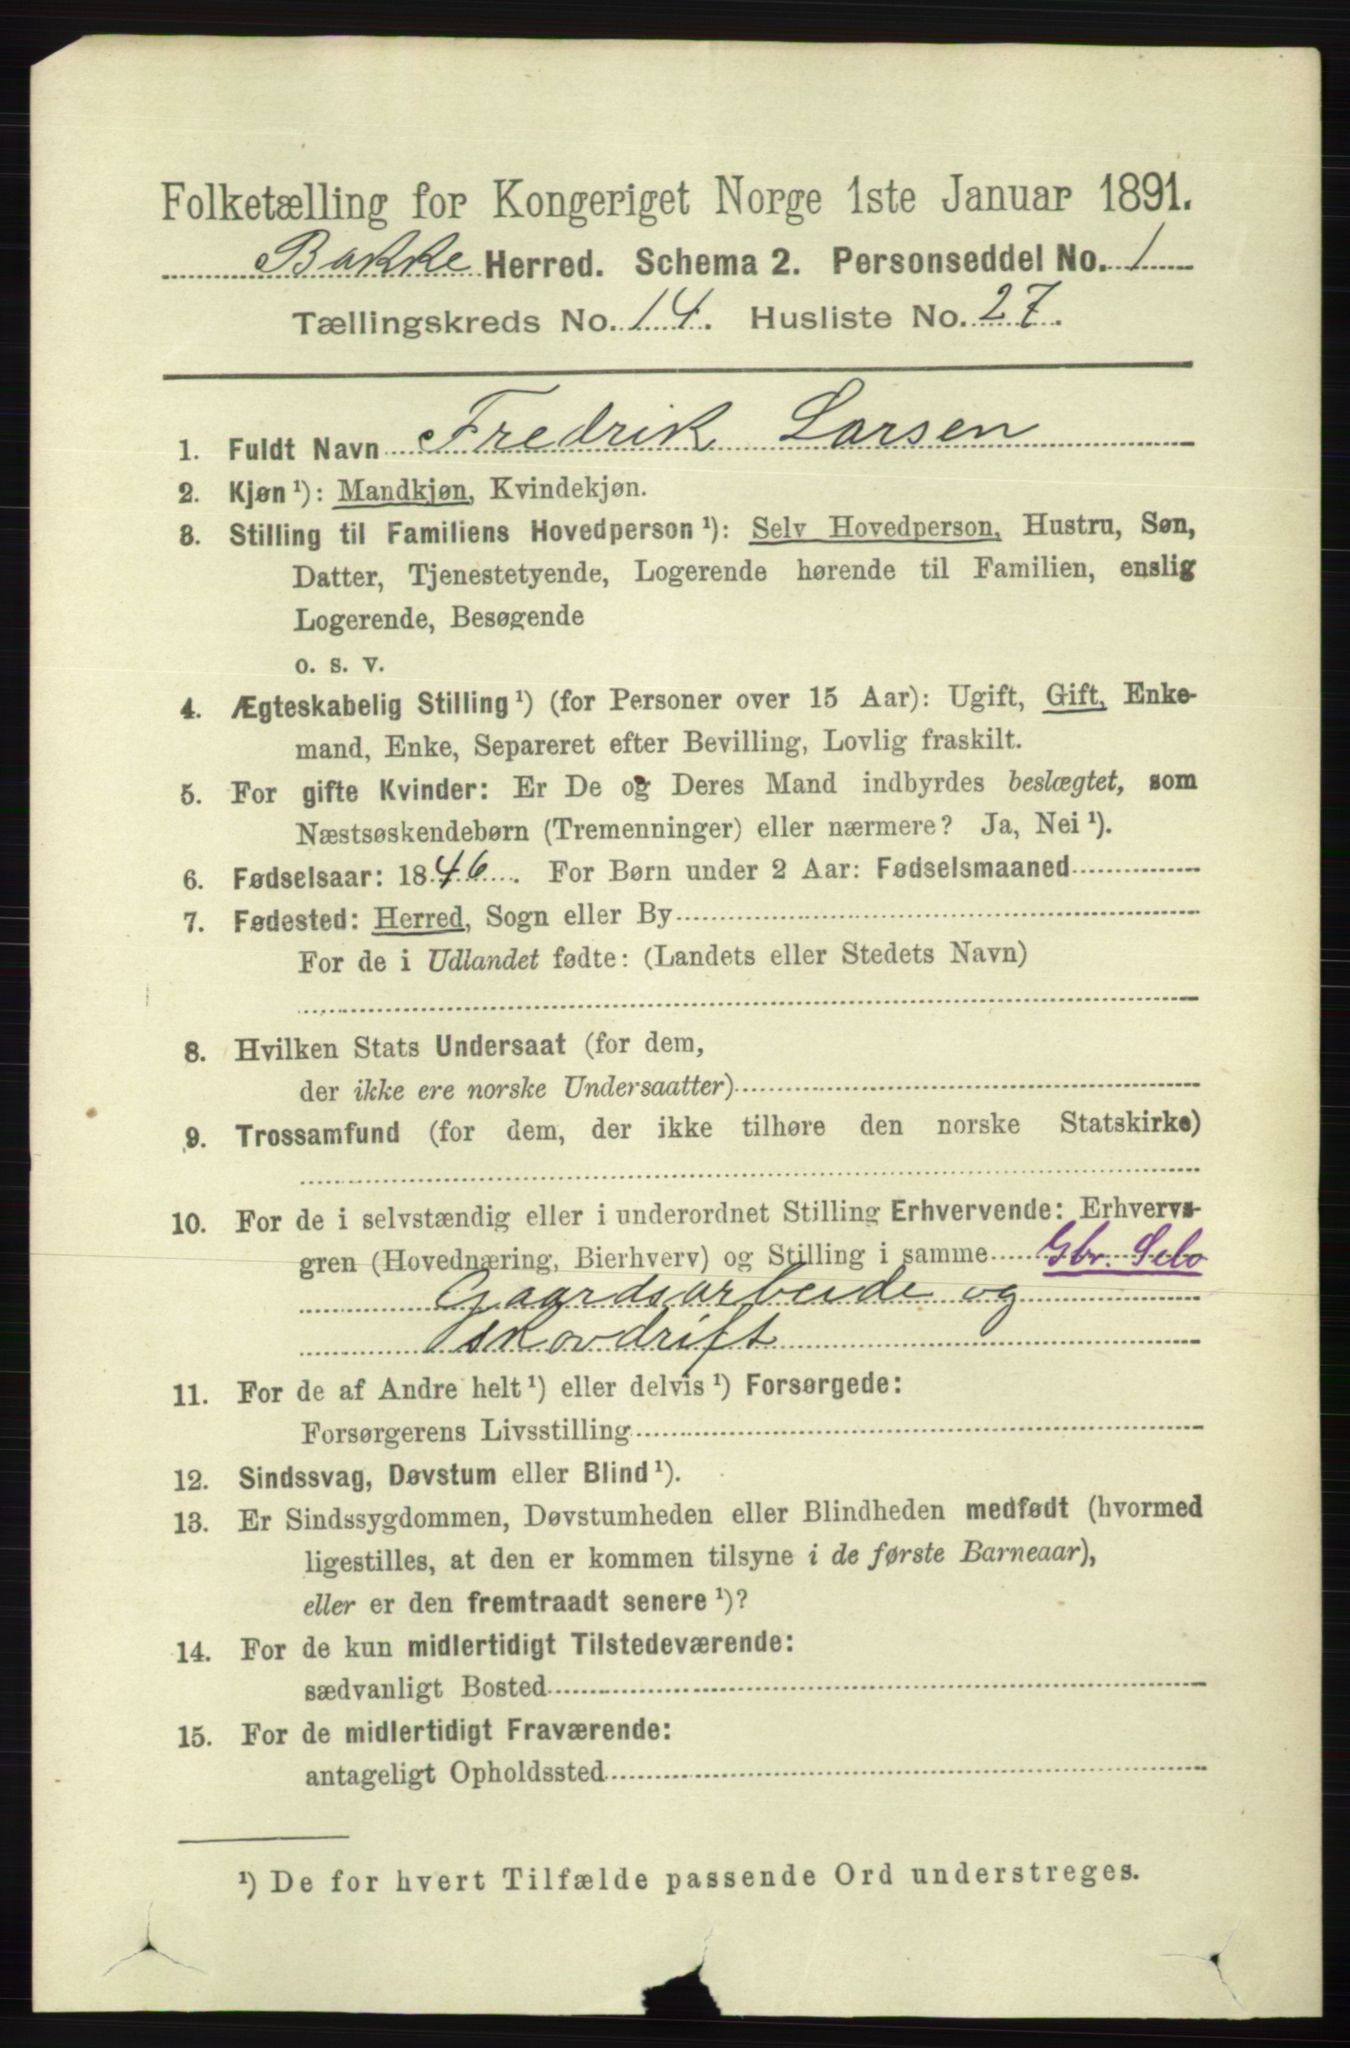 Folketælling for Kongeriget Norge 1ste Januar 1891.
Bakke Herred. Schema 2. Personseddel No. 1
Tællingskreds No. 14. Husliste No. 27.
1. Fuldt Navn Fredrik Larsen
2. Kjøn ¹): Mandkjøn, Kvindekjøn.
3. Stilling til Familiens Hovedperson ¹): Selv Hovedperson, Hustru, Søn,
Datter, Tjenestetyende, Logerende hørende til Familien, enslig
Logerende, Besøgende
o. s. v.
4. Ægteskabelig Stilling ¹) (for Personer over 15 Aar): Ugift, Gift, Enke-
mand, Enke, Separeret efter Bevilling, Lovlig fraskilt.
5. For gifte Kvinder: Er De og Deres Mand indbyrdes beslægtet, som
Næstsøskendebørn (Tremenninger) eller nærmere? Ja, Nei ¹).
6. Fødselsaar: 1846. For Børn under 2 Aar: Fødselsmaaned
7. Fødested: Herred, Sogn eller By
For de i Udlandet fødte: (Landets eller Stedets Navn)
8. Hvilken Stats Undersaat (for dem,
der ikke ere norske Undersaatter)
9. Trossamfund (for dem, der ikke tilhøre den norske Statskirke)
10. For de i selvstændig eller i underordnet Stilling Erhvervende: Erhvervs-
gren (Hovednæring, Bierhverv) og Stilling i samme Gbr. Selv
Gaardsarbeide og
skovdrift
11. For de af Andre helt ¹) eller delvis ¹) Forsørgede:
Forsørgerens Livsstilling
12. Sindssvag, Døvstum eller Blind ¹).
13. Er Sindssygdommen, Døvstumheden eller Blindheden medfødt (hvormed
ligestilles, at den er kommen tilsyne i de første Barneaar),
eller er den fremtraadt senere ¹)?
14. For de kun midlertidigt Tilstedeværende:
sædvanligt Bosted
15. For de midlertidigt Fraværende:
antageligt Opholdssted
¹) De for hvert Tilfælde passende Ord understreges.